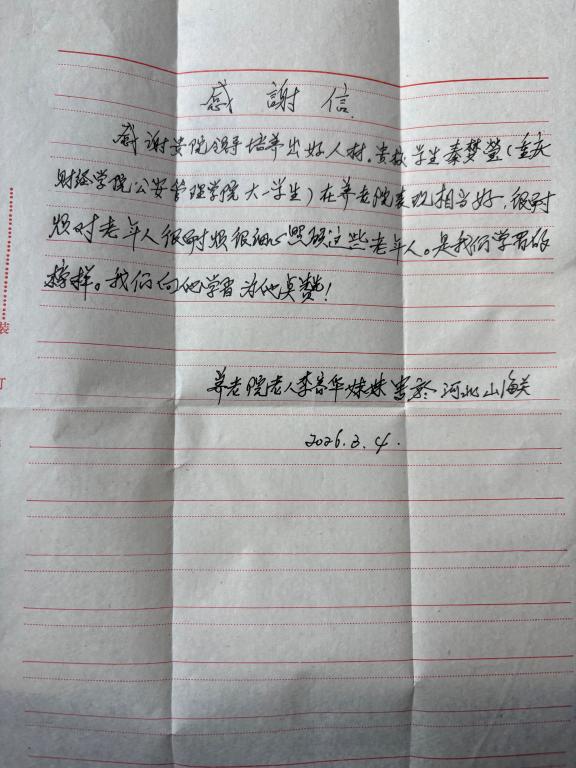 感謝信
感谢学院领导培养出好人材。贵校学生秦梦莹（重庆
财经学院公安管理学院大一学生）在养老院表现相当好，很耐
烦对老年人很耐烦很细心照顾这些老年人。是我们学習的
榜样。我们向他学習为他点赞！
养老院老人李容华妹妹 書於河北山海关
2026.3.4.
装
订